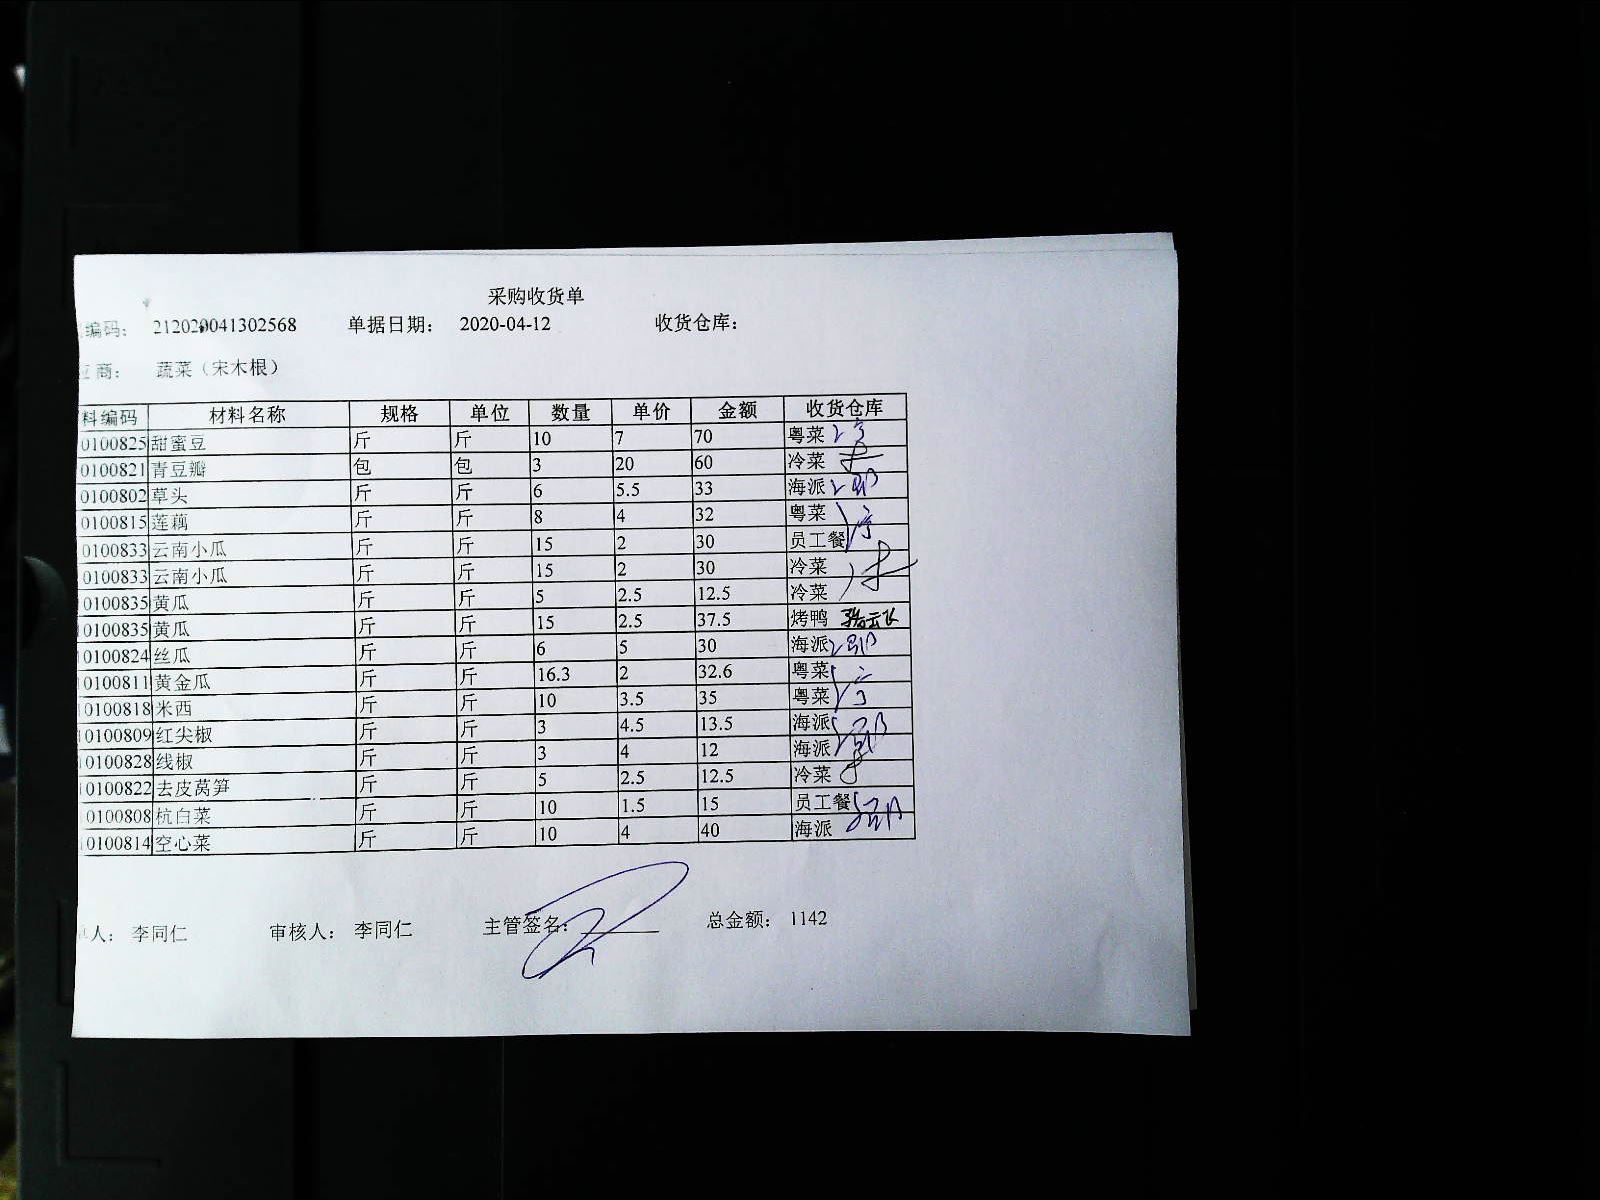 采购收货单
编码： 212020041302568 单据日期： 2020-04-12 收货仓库：
商： 蔬菜（宋木根）
料编码 材料名称 规格 单位 数量 单价 金额 收货仓库
0100825 甜蜜豆 斤 斤 10 7 70 粤菜
0100821 青豆瓣 包 包 3 20 60 冷菜
0100802 草头 斤 斤 6 5.5 33 海派
0100815 莲藕 斤 斤 8 4 32 粤菜
0100833 云南小瓜 斤 斤 15 2 30 员工餐
0100833 云南小瓜 斤 斤 15 2 30 冷菜
0100835 黄瓜 斤 斤 5 2.5 12.5 冷菜
0100835 黄瓜 斤 斤 15 2.5 37.5 烤鸭
0100824 丝瓜 斤 斤 6 5 30 海派
0100811 黄金瓜 斤 斤 16.3 2 32.6 粤菜
0100818 米西 斤 斤 10 3.5 35 粤菜
0100809 红尖椒 斤 斤 3 4.5 13.5 海派
0100828 线椒 斤 斤 3 4 12 海派
0100822 去皮莴笋 斤 斤 5 2.5 12.5 冷菜
0100808 杭白菜 斤 斤 10 1.5 15 员工餐
0100814 空心菜 斤 斤 10 4 40 海派
人： 李同仁 审核人： 李同仁 主管签名： 总金额： 1142